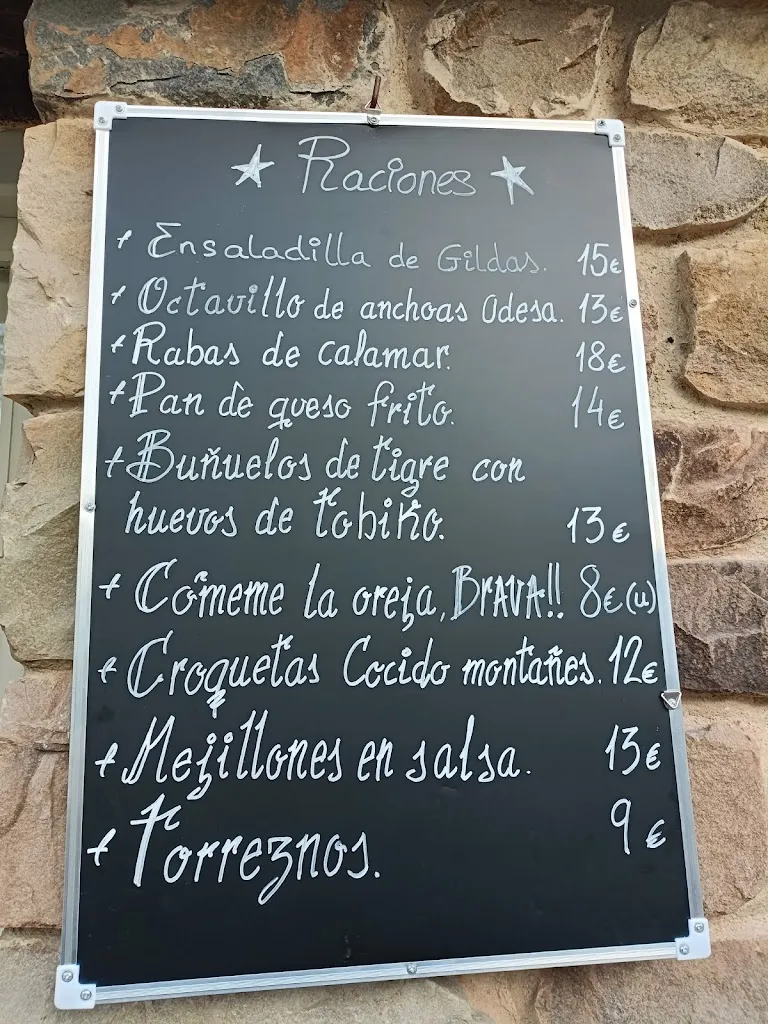 Raciones
+ Ensaladilla de Gildas. 15€
+ Octavillo de anchoas Odesa. 13€
+ Rabas de calamar. 18€
+ Pan de queso frito. 14€
+ Buñuelos de tigre con
huevos de tobiko. 13€
+ Cómeme la oreja, BRAVA!! 8€(u)
+ Croquetas Cocido montañes. 12€
+ Mejillones en salsa. 13€
+ Torreznos. 9€